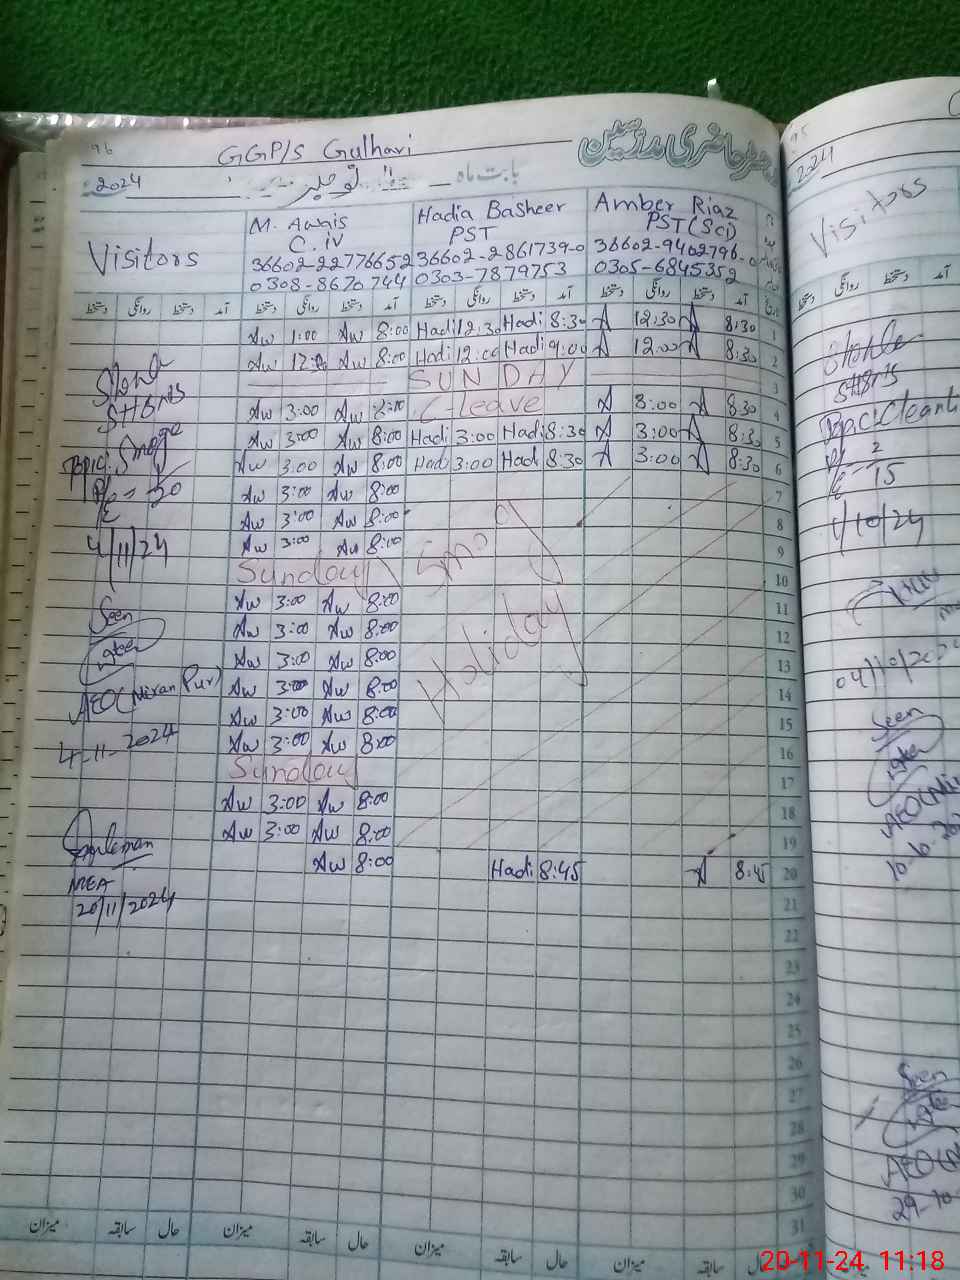 96
GGP/S Gulhari
رجسٹر حاضری مدرسین
2024
نومبر
بابت ماہ
Visitors
M. Awais
C. iv
36602-22776652
0308-8670744
Hadia Basheer
PST
36602-2861739-0
0303-7879753
Amber Riaz
PST (Sci)
36602-9402796-0
0305-6845352
دستخط روانگی دستخط آمد دستخط روانگی دستخط آمد دستخط روانگی دستخط آمد دستخط روانگی دستخط آمد تاریخ
Aw 1:00 Aw 8:00 Hadi 12:30 Hadi 8:30 A 12:30 A 8:30 1
Aw 12:00 Aw 8:00 Hadi 12:00 Hadi 9:00 A 12:00 A 8:30 2
SUNDAY 3
Aw 3:00 Aw 8:00 C-Leave A 3:00 A 8:30 4
Aw 3:00 Aw 8:00 Hadi 3:00 Hadi 8:30 A 3:00 A 8:30 5
Aw 3:00 Aw 8:00 Hadi 3:00 Hadi 8:30 A 3:00 A 8:30 6
Aw 3:00 Aw 8:00 7
Aw 3:00 Aw 8:00 8
Aw 3:00 Aw 8:00 9
Sunday 10
Aw 3:00 Aw 8:00 11
Aw 3:00 Aw 8:00 12
Aw 3:00 Aw 8:00 13
Aw 3:00 Aw 8:00 14
Aw 3:00 Aw 8:00 15
Aw 3:00 Aw 8:00 16
Sunday 17
Aw 3:00 Aw 8:00 18
Aw 3:00 Aw 8:00 19
Aw 8:00 Hadi 8:45 A 8:45 20
21
22
23
24
25
26
27
28
29
30
31
Smog
Holiday
SH&NS
Topic: Smog
P/E = 30
4/11/24
Seen
AEO (Miran Pur)
4-11-2024
MEA
20/11/2024
میزان سابقہ حال میزان سابقہ حال میزان سابقہ حال میزان سابقہ حال
95
2024
Visitors
دستخط روانگی دستخط آمد
SH&NS
15
4/10/24
04/10/202
Seen
10-6-202
Seen
29-10
20-11-24 11:18